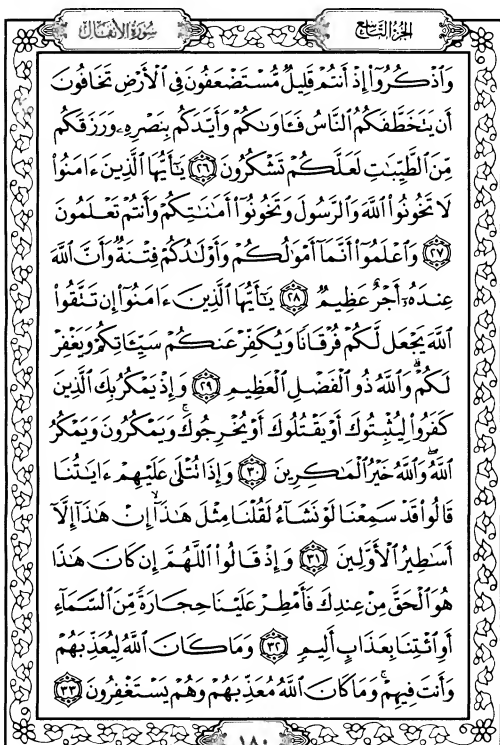 سُورَةُ الأَنفَال
الجُزْءُ التَّاسِع
وَٱذۡكُرُوٓاْ إِذۡ أَنتُمۡ قَلِيلٌ مُّسۡتَضۡعَفُونَ فِي ٱلۡأَرۡضِ تَخَافُونَ
أَن يَتَخَطَّفَكُمُ ٱلنَّاسُ فَـَٔاوَىٰكُمۡ وَأَيَّدَكُم بِنَصۡرِهِۦ وَرَزَقَكُم
مِّنَ ٱلطَّيِّبَٰتِ لَعَلَّكُمۡ تَشۡكُرُونَ ٢٦ يَٰٓأَيُّهَا ٱلَّذِينَ ءَامَنُواْ
لَا تَخُونُواْ ٱللَّهَ وَٱلرَّسُولَ وَتَخُونُوٓاْ أَمَٰنَٰتِكُمۡ وَأَنتُمۡ تَعۡلَمُونَ
٢٧ وَٱعۡلَمُوٓاْ أَنَّمَآ أَمۡوَٰلُكُمۡ وَأَوۡلَٰدُكُمۡ فِتۡنَةٞ وَأَنَّ ٱللَّهَ
عِندَهُۥٓ أَجۡرٌ عَظِيمٞ ٢٨ يَٰٓأَيُّهَا ٱلَّذِينَ ءَامَنُوٓاْ إِن تَتَّقُواْ
ٱللَّهَ يَجۡعَل لَّكُمۡ فُرۡقَانٗا وَيُكَفِّرۡ عَنكُمۡ سَيِّـَٔاتِكُمۡ وَيَغۡفِرۡ
لَكُمۡۗ وَٱللَّهُ ذُو ٱلۡفَضۡلِ ٱلۡعَظِيمِ ٢٩ وَإِذۡ يَمۡكُرُ بِكَ ٱلَّذِينَ
كَفَرُواْ لِيُثۡبِتُوكَ أَوۡ يَقۡتُلُوكَ أَوۡ يُخۡرِجُوكَۚ وَيَمۡكُرُونَ وَيَمۡكُرُ
ٱللَّهُۖ وَٱللَّهُ خَيۡرُ ٱلۡمَٰكِرِينَ ٣٠ وَإِذَا تُتۡلَىٰ عَلَيۡهِمۡ ءَايَٰتُنَا
قَالُواْ قَدۡ سَمِعۡنَا لَوۡ نَشَآءُ لَقُلۡنَا مِثۡلَ هَٰذَآ إِنۡ هَٰذَآ إِلَّآ
أَسَٰطِيرُ ٱلۡأَوَّلِينَ ٣١ وَإِذۡ قَالُواْ ٱللَّهُمَّ إِن كَانَ هَٰذَا
هُوَ ٱلۡحَقَّ مِنۡ عِندِكَ فَأَمۡطِرۡ عَلَيۡنَا حِجَارَةٗ مِّنَ ٱلسَّمَآءِ
أَوِ ٱئۡتِنَا بِعَذَابٍ أَلِيمٖ ٣٢ وَمَا كَانَ ٱللَّهُ لِيُعَذِّبَهُمۡ
وَأَنتَ فِيهِمۡۚ وَمَا كَانَ ٱللَّهُ مُعَذِّبَهُمۡ وَهُمۡ يَسۡتَغۡفِرُونَ ٣٣
١٨٠